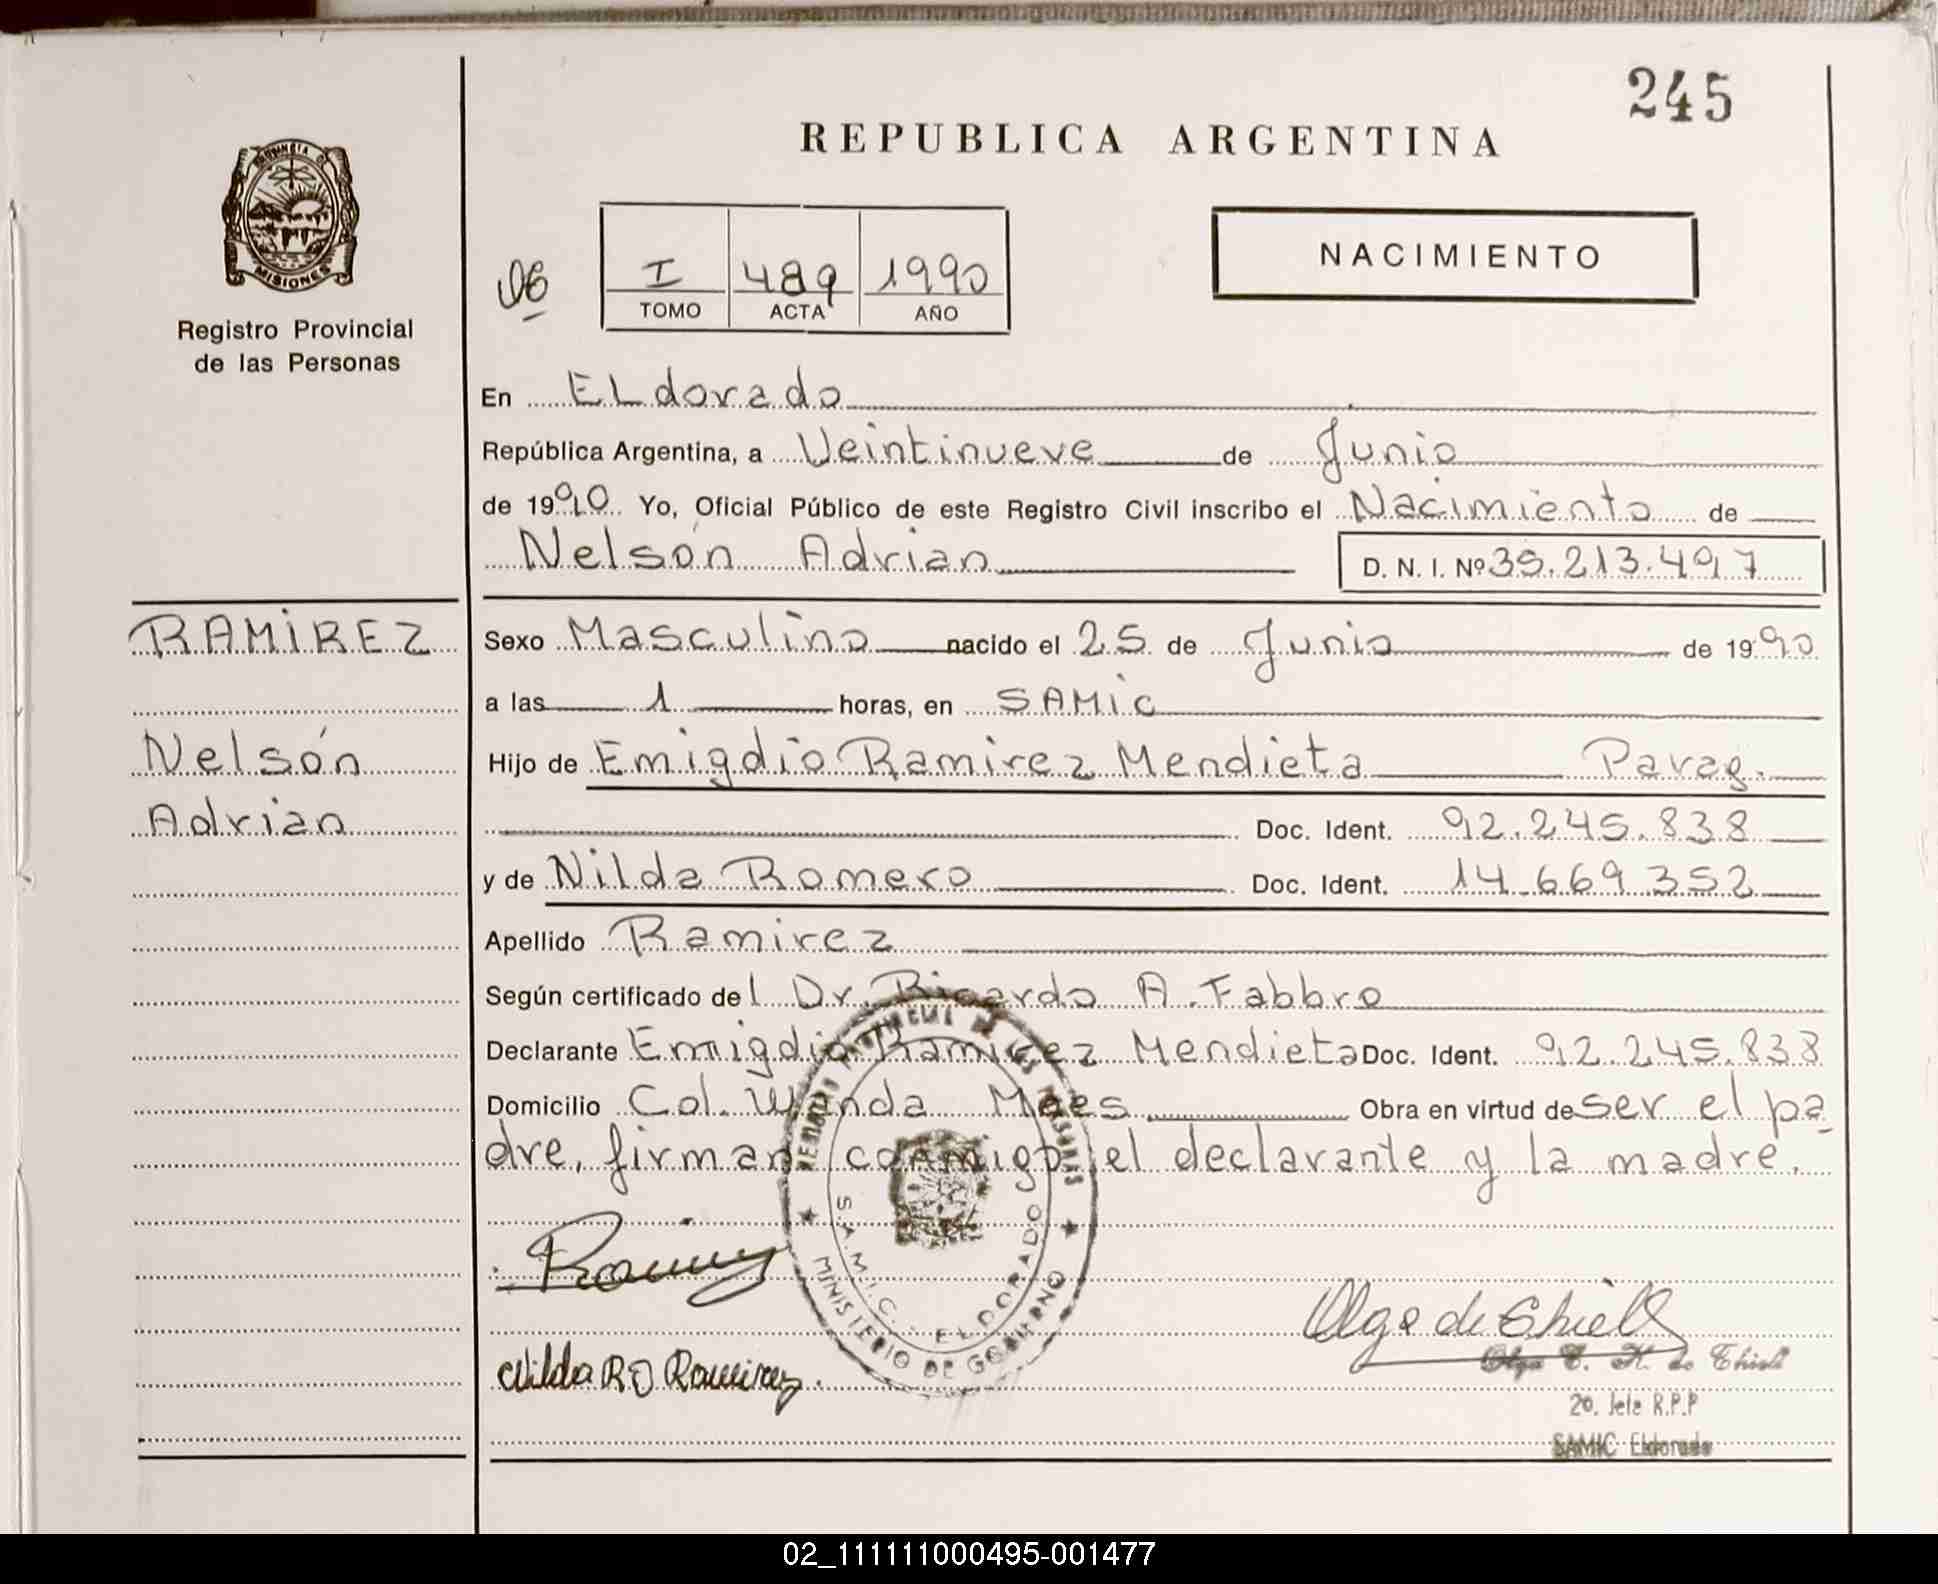 245
REPUBLICA ARGENTINA
PROVINCIA DE
MISIONES
Registro Provincial
de las Personas
06
I 489 1990
TOMO ACTA AÑO
NACIMIENTO
En ELdorado
República Argentina, a Veintinueve de Junio
de 1990 Yo, Oficial Público de este Registro Civil inscribo el Nacimiento de
Nelsón Adrian D. N. I. Nº 35.213.497
RAMIREZ
Nelsón
Adrian
Sexo Masculino nacido el 25 de Junio de 1990
a las 1 horas, en SAMic
Hijo de Emigdio Ramirez Mendieta Parag.
Doc. Ident. 92.245.838
y de Nilda Romero Doc. Ident. 14.669.352
Apellido Ramirez
Según certificado del Dr. Ricardo A. Fabbro
Declarante Emigdio Ramirez Mendieta Doc. Ident. 92.245.838
Domicilio Col. Wanda Mnes Obra en virtud de ser el pa
dre, firman conmigo el declarante y la madre.
REGISTRO PROVINCIAL DE LAS PERSONAS
S.A.M.I.C. - ELDORADO
MINISTERIO DE GOBIERNO
Nilda RD Ramirez.
Olga de Thiele
Olga C. H. de Thiele
2o. Jefe R.P.P
SAMIC Eldorado
02_111111000495-001477